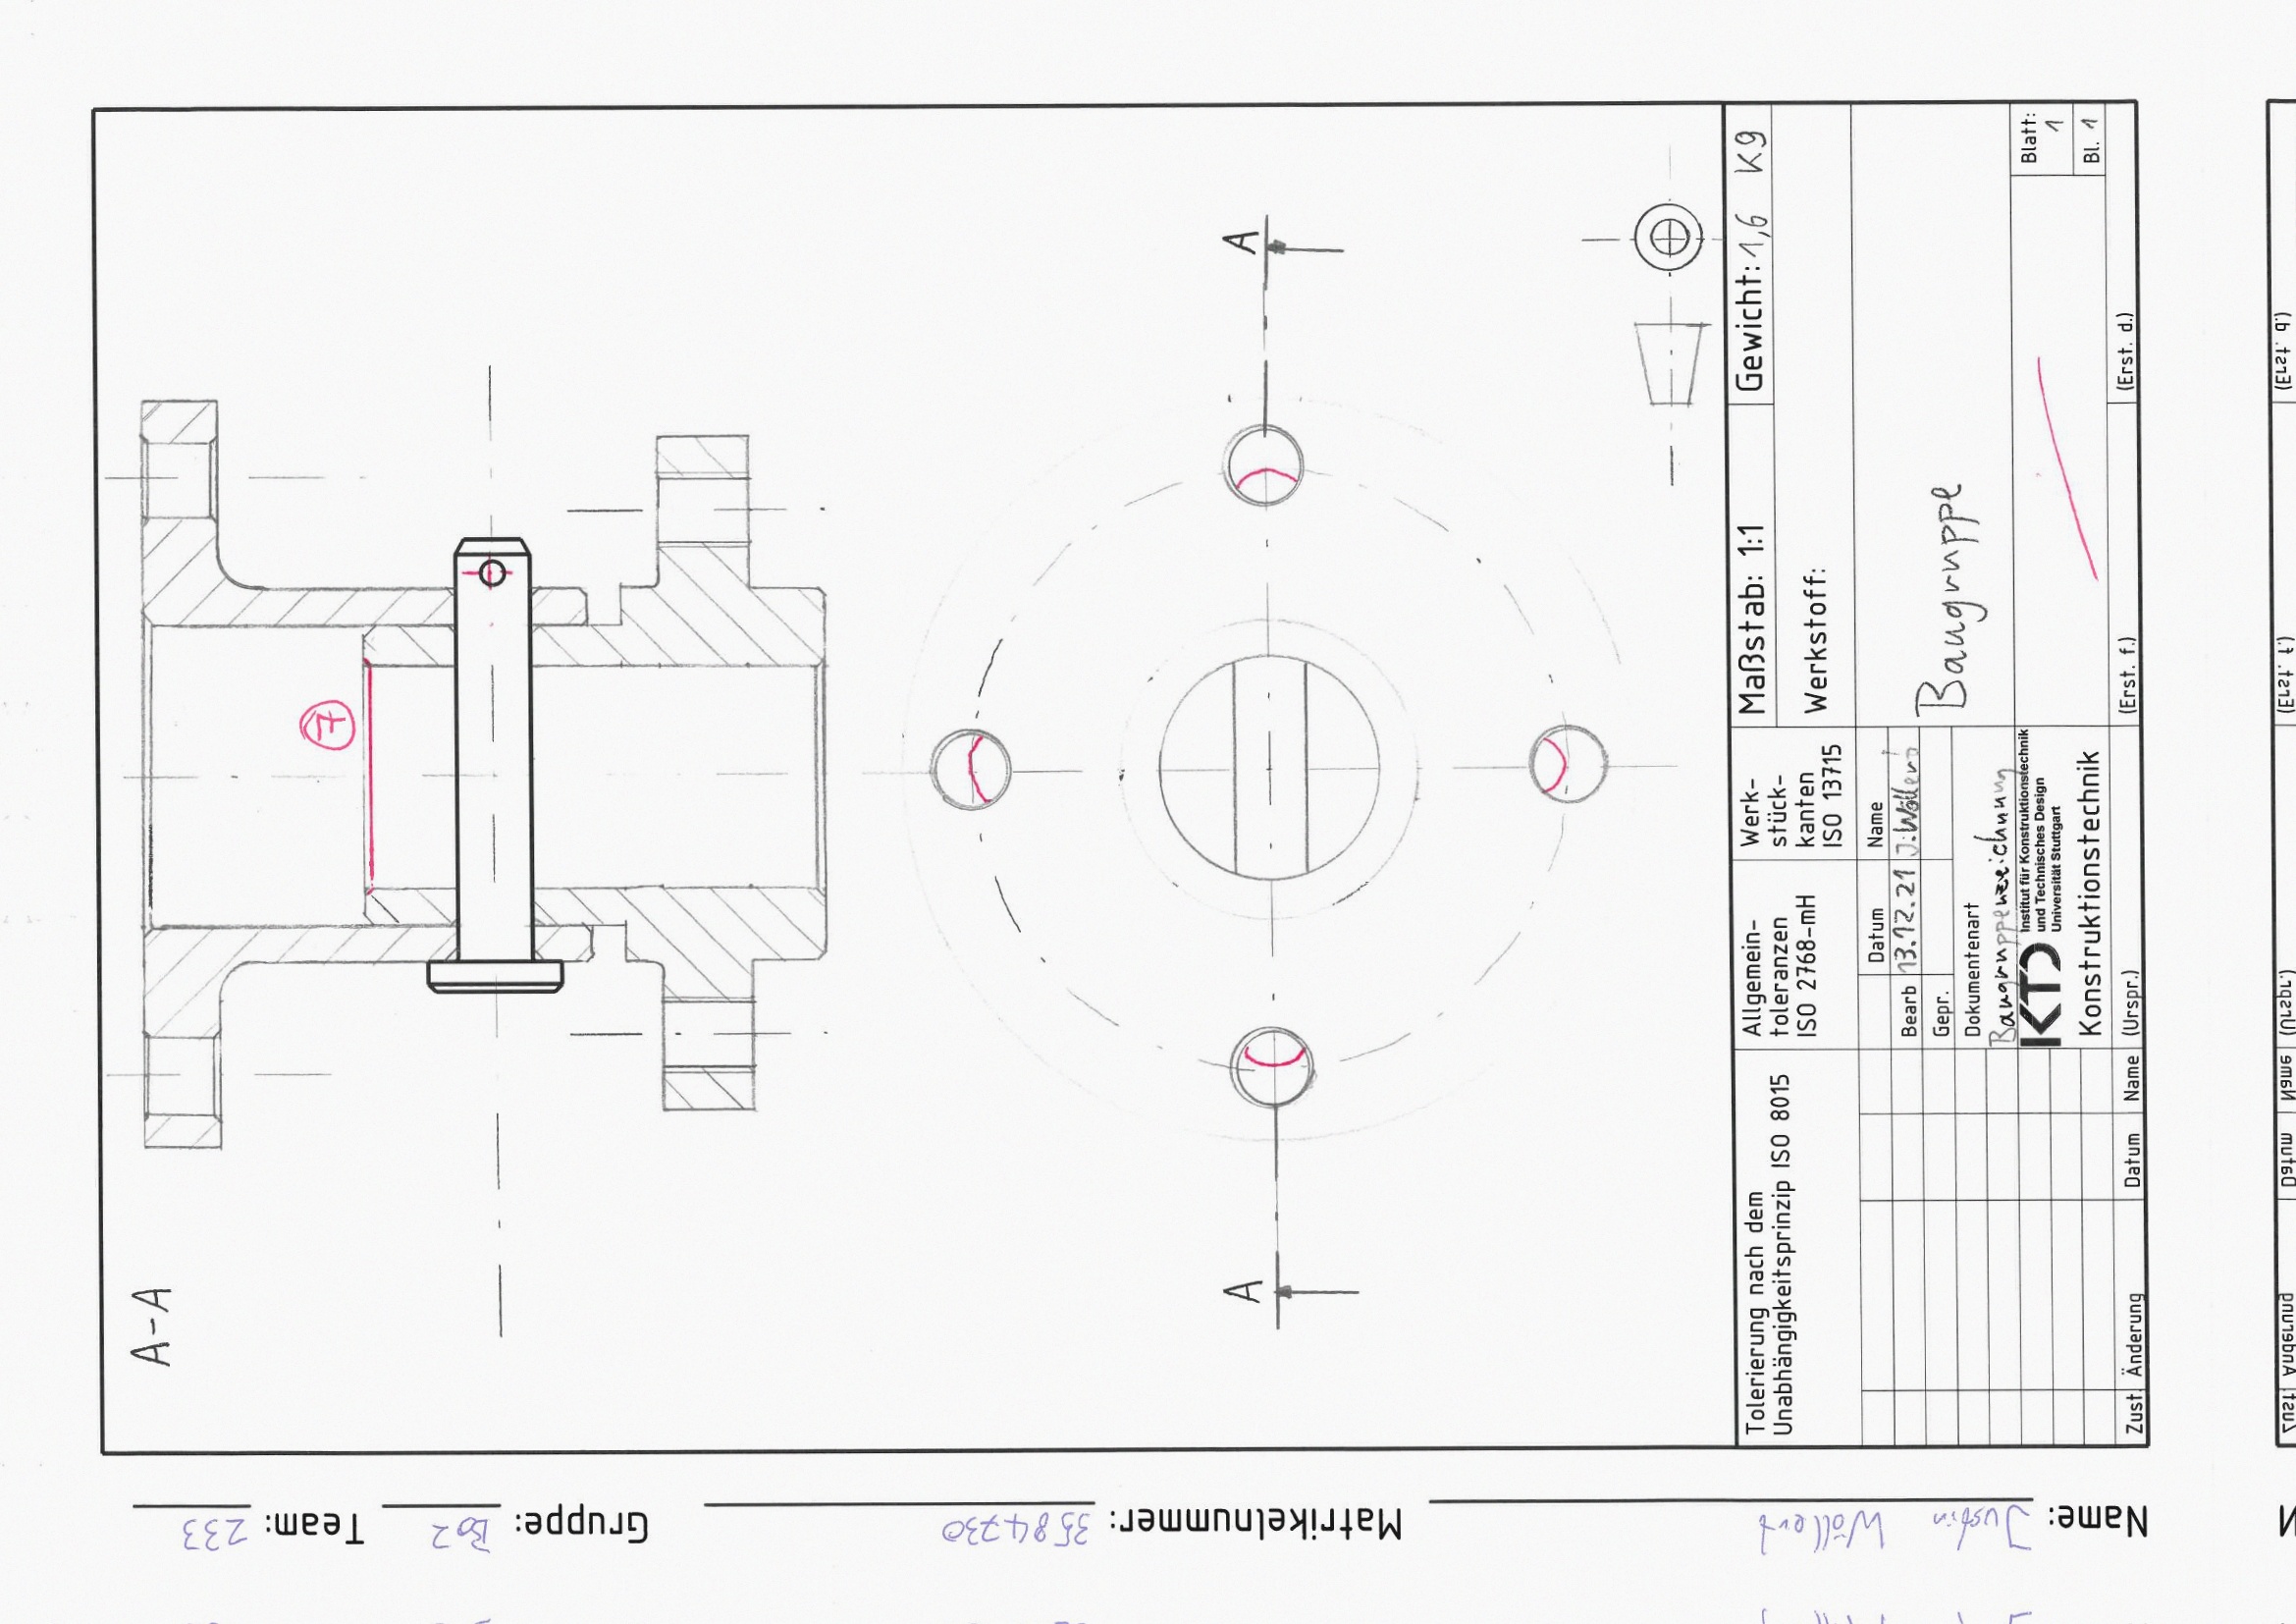 A-A
7
A
A
Tolerierung nach dem
Unabhängigkeitsprinzip ISO 8015
Allgemein-
toleranzen
ISO 2768-mH
Werk-
stück-
kanten
ISO 13715
Maßstab: 1:1
Gewicht: 1,6 Kg
Werkstoff:
Datum
Name
Bearb
13.12.21
J. Wöllert
Gepr.
Dokumentenart
Baugruppenzeichnung
Baugruppe
KTD
Institut für Konstruktionstechnik
und Technisches Design
Universität Stuttgart
Konstruktionstechnik
Blatt:
1
Bl. 1
Zust.
Änderung
Datum
Name
(Urspr.)
(Erst. f.)
(Erst. d.)
Name: Justin Wöllert
Matrikelnummer: 3584730
Gruppe: B02
Team: 233